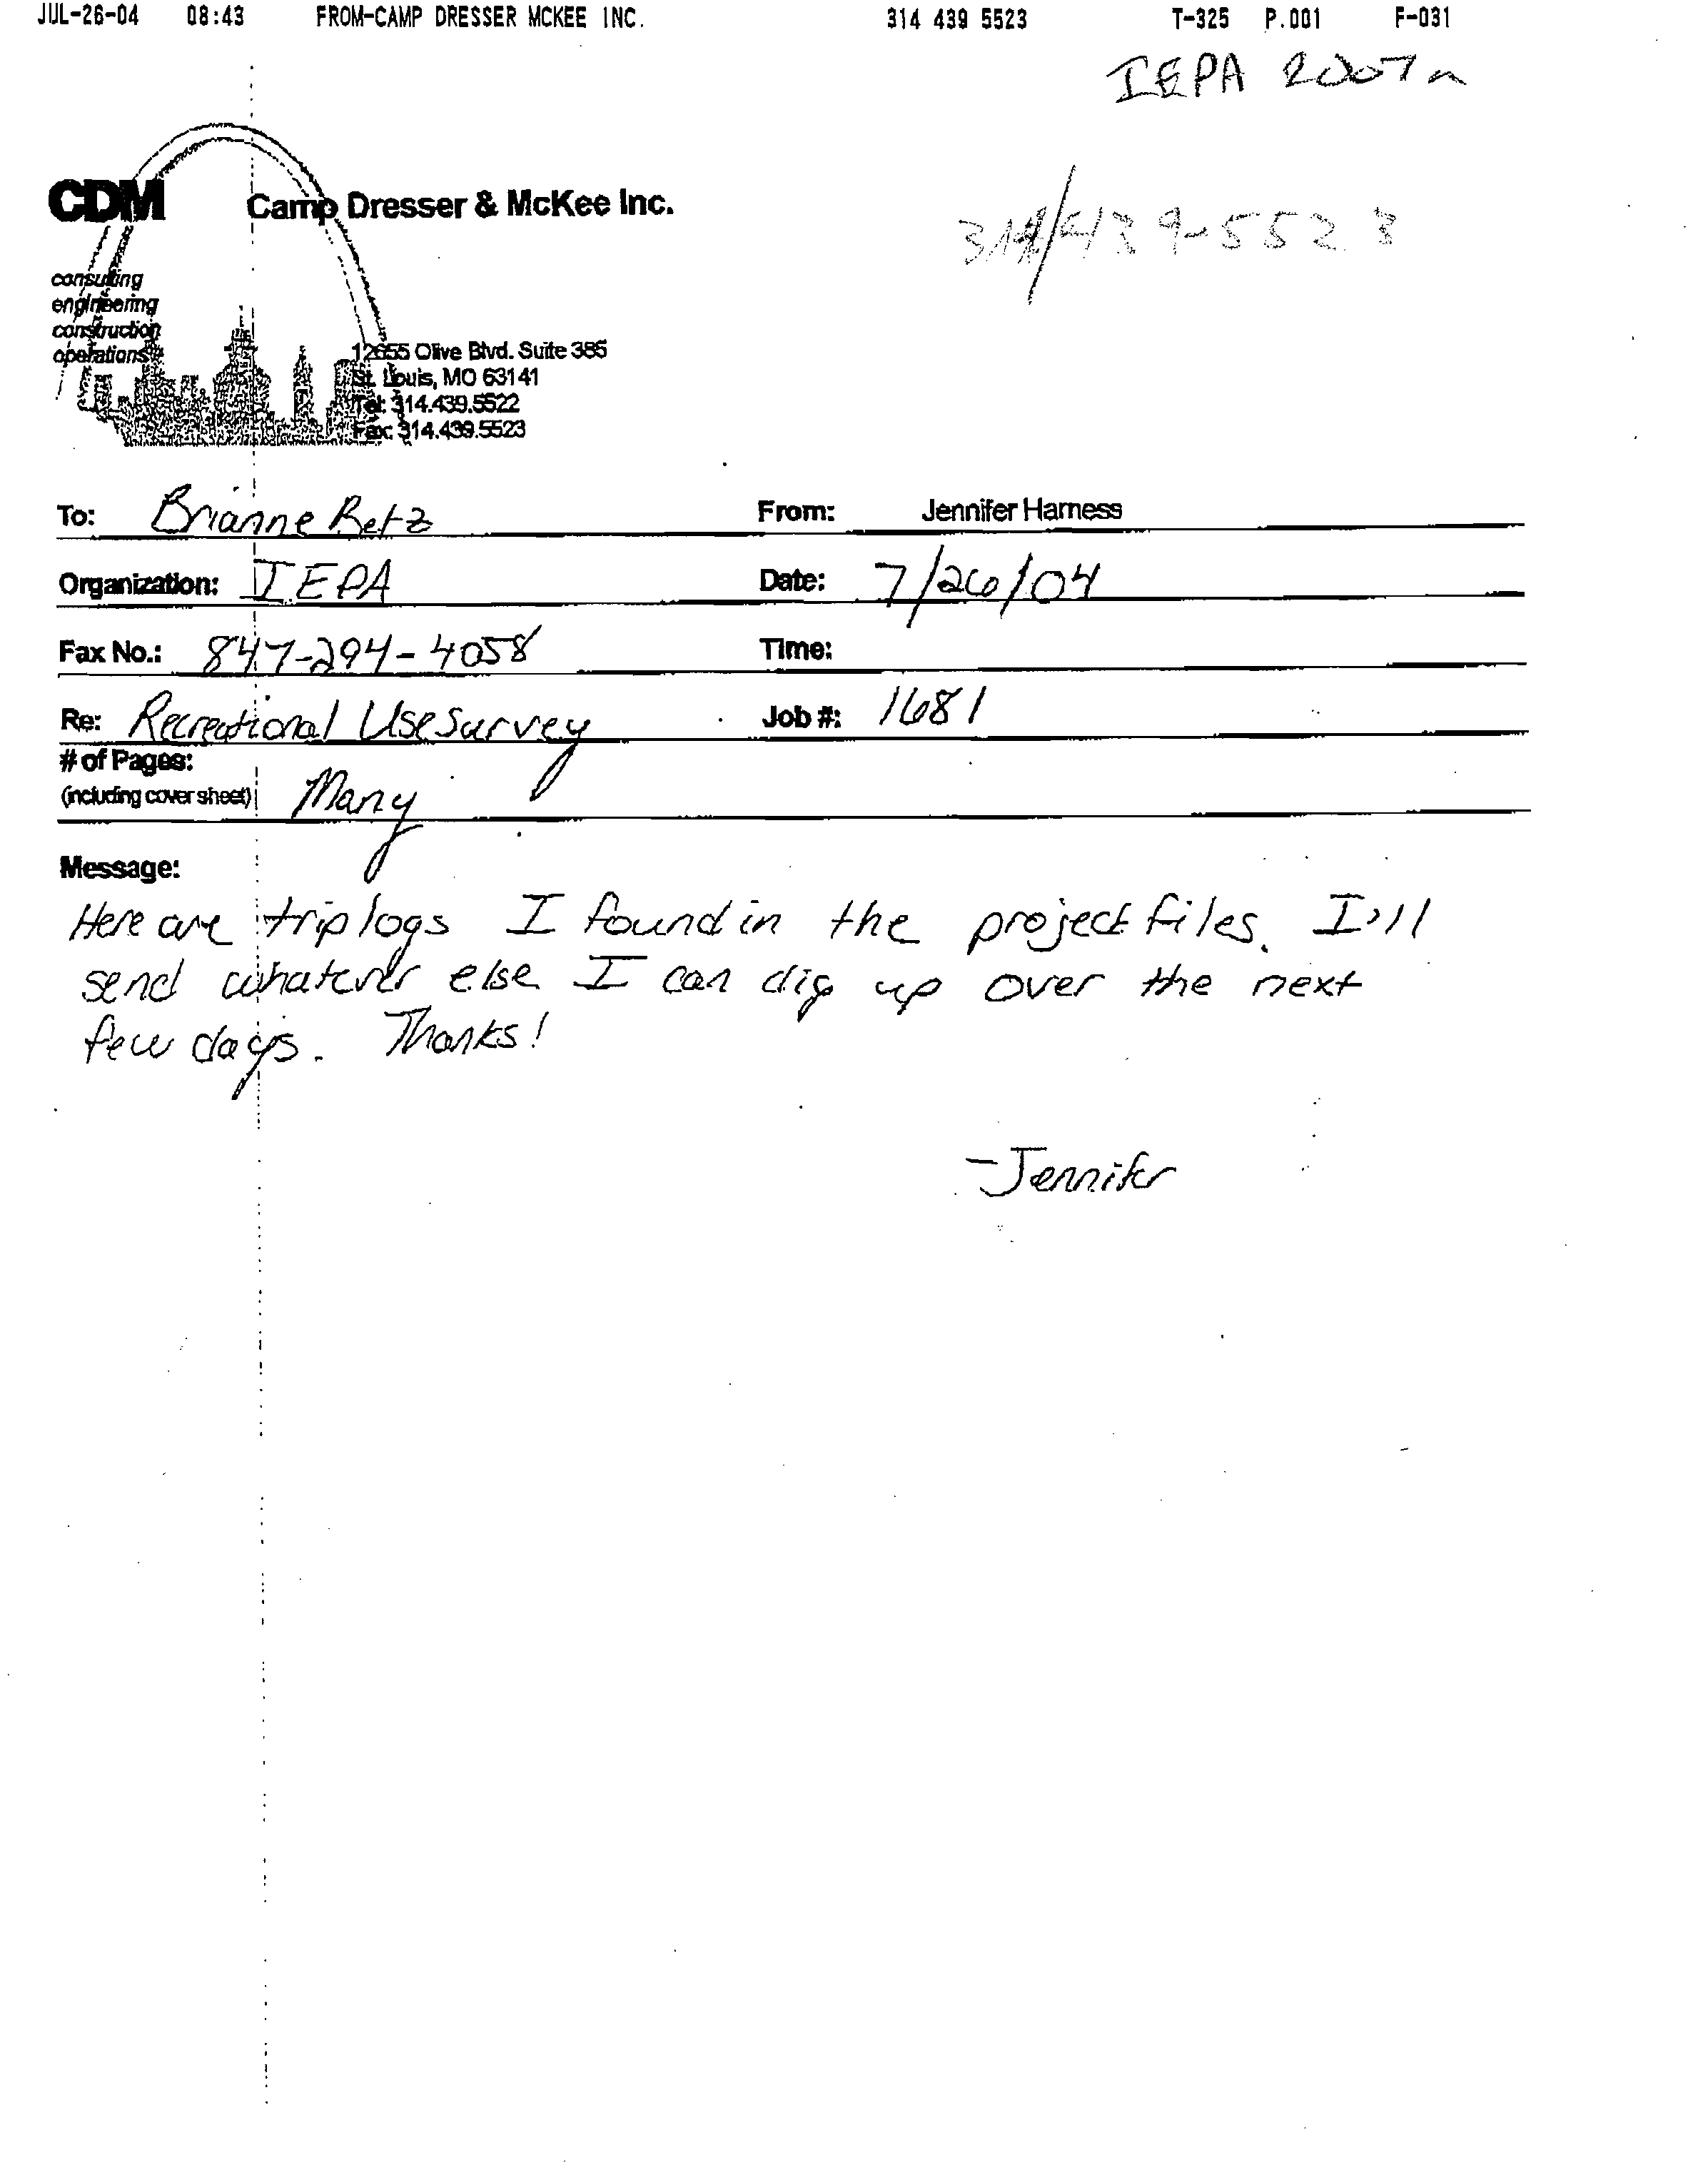 JUL-26-04 08:43 FROM-CAMP DRESSER MCKEE INC. 314 439 5523 T-325 P.001 F-031
IEPA 2007a
CDM Camp Dresser & McKee Inc.
314/439-5523
consulting
engineering
construction
operations
12655 Olive Blvd. Suite 385
St. Louis, MO 63141
Tel: 314.439.5522
Fax: 314.439.5523
To: Brianne Betz From: Jennifer Harness
Organization: IEPA Date: 7/26/04
Fax No.: 847-294-4058 Time:
Re: Recreational Use Survey Job #: 1681
# of Pages:
(including cover sheet) Many
Message:
Here are trip logs I found in the project files. I'll
send whatever else I can dig up over the next
few days. Thanks!
-Jennifer